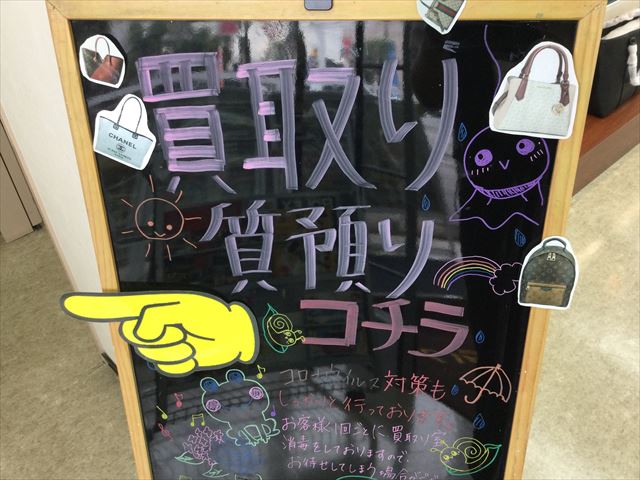 買取り
質預り
コチラ
コロナウイルス対策も
しっかりと行っております。
お客様1回ごとに買取り室
消毒をしておりますので、
お待せしてしまう場合が
CHANEL